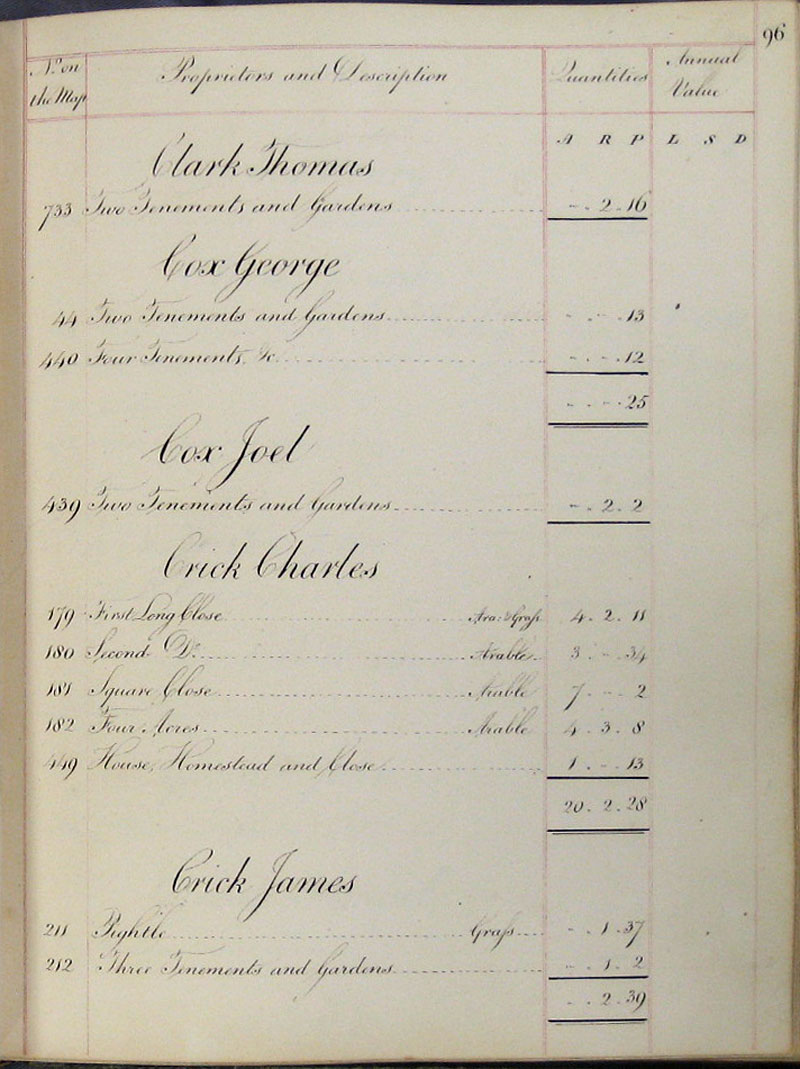 96
No. on the Map Proprietors and Description Quantities Annual Value
A R P L S D
Clark Thomas
733 Two Tenements and Gardens - . 2 . 16
Cox George
44 Two Tenements and Gardens - . - . 13
440 Four Tenements, &c - . - . 12
- . - . 25
Cox Joel
439 Two Tenements and Gardens - . 2 . 2
Crick Charles
179 First Long Close Ara: & Graſs 4 . 2 . 11
180 Second Do. Arable 3 . - . 34
181 Square Close Arable 7 . - . 2
182 Four Acres Arable 4 . 3 . 8
449 House, Homestead and Close 1 . - . 13
20 . 2 . 28
Crick James
211 Pightle Graſs - . 1 . 37
212 Three Tenements and Gardens - . 1 . 2
- . 2 . 39